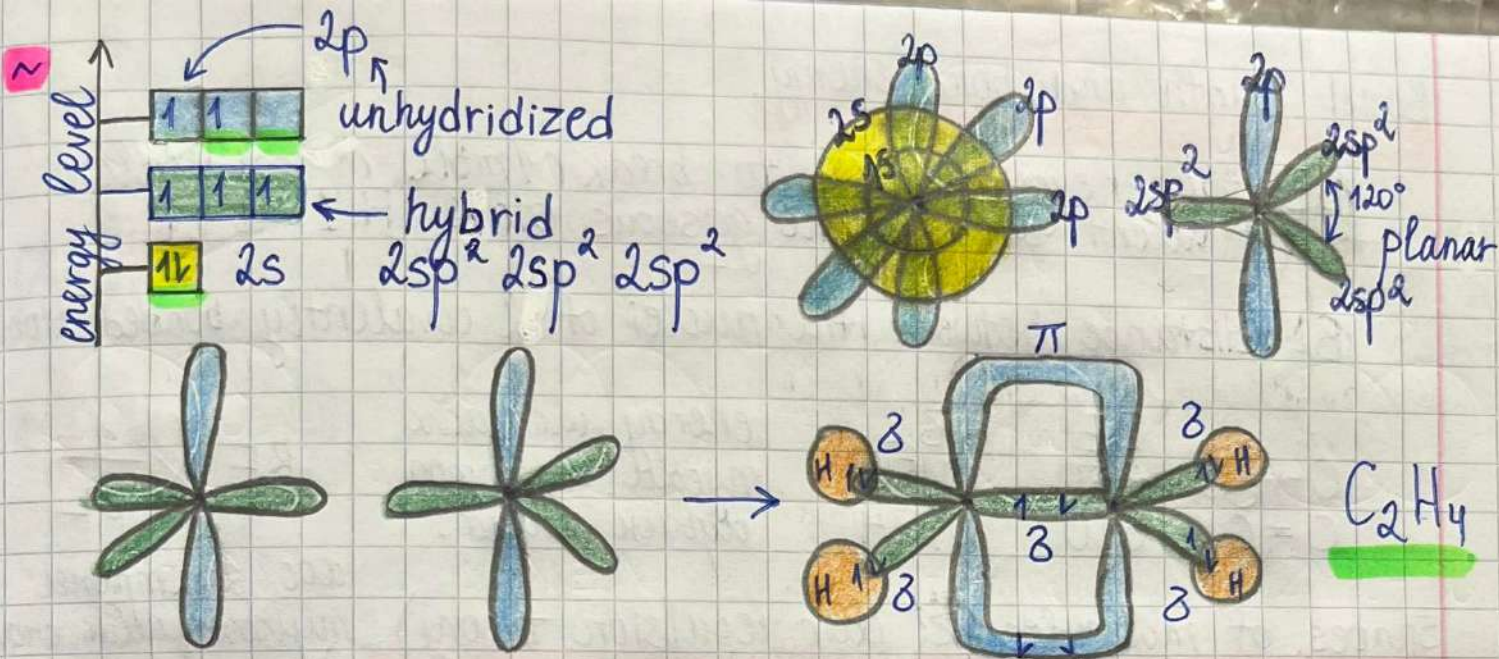 ~
energy level
2p
unhydridized
1 1
1 1 1
hybrid
1⇂ 2s 2sp² 2sp² 2sp²
2p
2s
2p
1s
2p
2p
2sp²
2sp²
120°
planar
2sp²
π
H 1⇂ 8
8 1⇂ H
1 ⇂
8
H 1⇂ 8
8 1⇂ H
C₂H₄